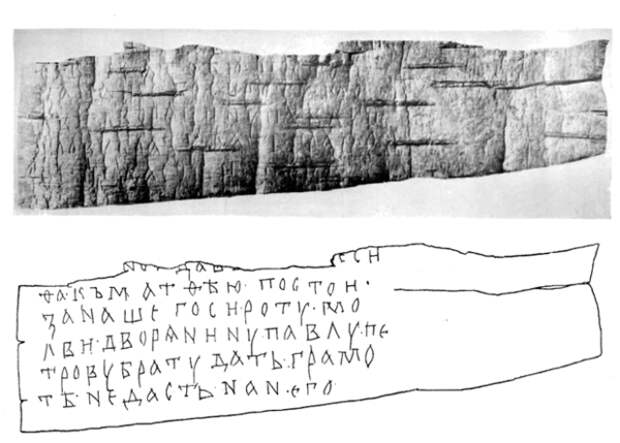 ѲА·КЪМАТѲѢЮ·ПОСТОИ·
ЗАНАШЕГОСИРОТУ·МО
ЛВИ·ДВОРѦНИНУПАВЛУ·ПЕ
ТРОВУБРАТУДАТЬ·ГРАМО
ТѢ·НЕДАСТЬ·НАН·ЕГО